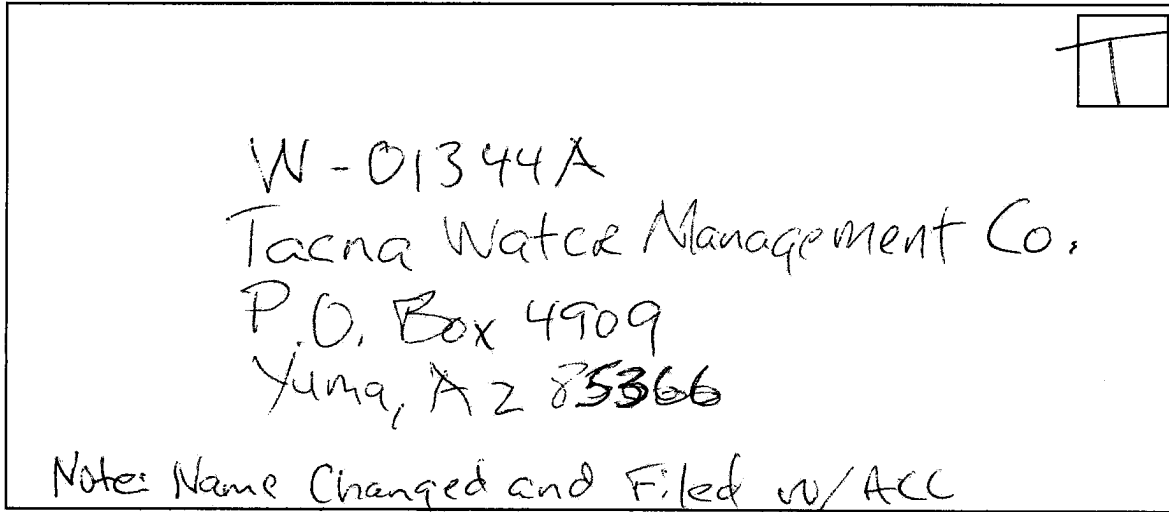 T
W-01344A
Tacna Water Management Co.
P.O. Box 4909
Yuma, AZ 85366
Note: Name Changed and Filed w/ ACC